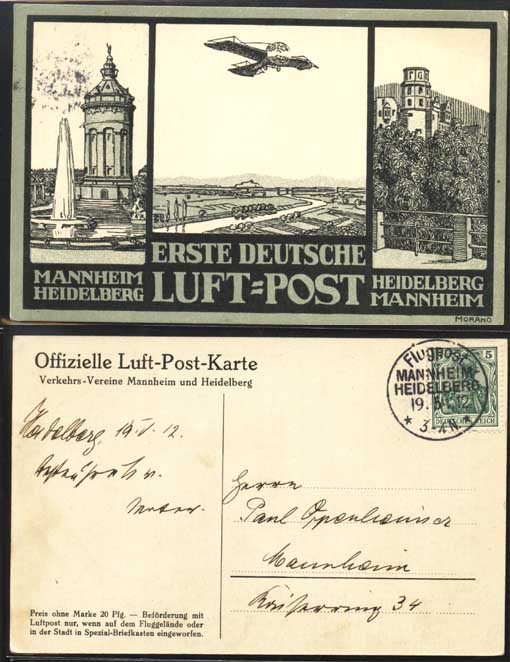 ERSTE DEUTSCHE
LUFT=POST
MANNHEIM
HEIDELBERG
HEIDELBERG
MANNHEIM
MORANO
Offizielle Luft-Post-Karte
Verkehrs-Vereine Mannheim und Heidelberg
Flugpost
MANNHEIM-
HEIDELBERG
19. 5. 12
* 3-4 N *
5
DEUTSCHES REICH
Heidelberg, 19 V. 12.
Herrn
Paul Oppenheimer
Mannheim
Kaiserring 34
Preis ohne Marke 20 Pfg. — Beförderung mit
Luftpost nur, wenn auf dem Fluggelände oder
in der Stadt in Spezial-Briefkasten eingeworfen.